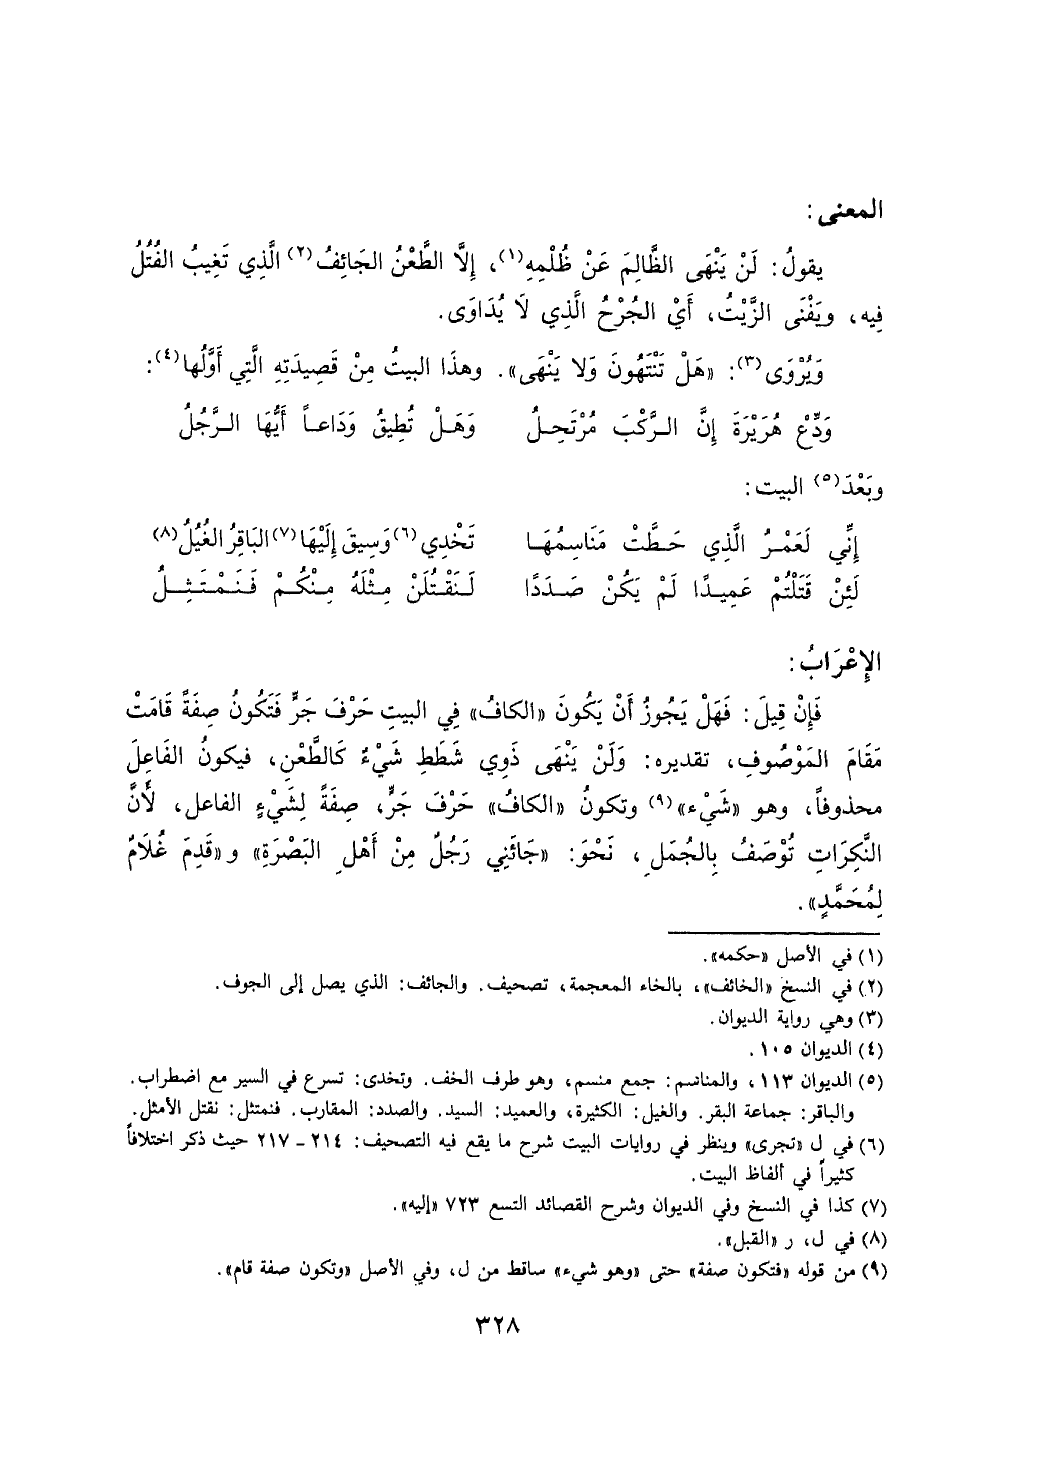 المعنى :
يقولُ: لَنْ يَنْهَى الظَّالِمَ عَنْ ظُلْمِهِ(١)، إِلَّا الطَّعْنُ الجَائِفُ(٢) الَّذِي تَغِيبُ الفُتُلُ
فِيه، ويَفْنَى الزَّيْتُ، أَيْ الجُرْحُ الَّذِي لَا يُدَاوَى.
وَيُرْوَى(٣): «هَلْ تَنْتَهُونَ وَلا يَنْهَى». وهذَا البيتُ مِنْ قَصِيدَتِهِ الَّتِي أَوَّلُها(٤):
وَدِّعْ هُرَيْرَةَ إِنَّ الـرَّكْبَ مُرْتَحِـلُ وَهَـلْ تُطِيقُ وَدَاعـاً أَيُّهَا الـرَّجُلُ
وبَعْدَ(٥) البيت:
إِنِّي لَعَمْـرُ الَّذِي حَـطَّتْ مَنَاسِمُهَـا تَخْدِي(٦) وَسِيقَ إِلَيْهَا(٧) البَاقِرُ الغُيُلُ(٨)
لَئِنْ قَتَلْتُمْ عَمِيـدًا لَمْ يَكُنْ صَـدَدًا لَـنَقْـتُلَنْ مِـثْلَهُ مِـنْكُـمْ فَـنَـمْـتَـثِـلُ
الإِعْرَابُ:
فَإِنْ قِيلَ: فَهَلْ يَجُوزُ أَنْ يَكُونَ «الكافُ» فِي البيتِ حَرْفَ جَرٍّ فَتَكُونُ صِفَةً قَامَتْ
مَقَامَ المَوْصُوفِ، تقديره: وَلَنْ يَنْهَى ذَوِي شَطَطِ شَيْءٌ كَالطَّعْنِ، فيكونُ الفَاعِلَ
محذوفاً، وهو «شَيْء»(٩) وتكونُ «الكافُ» حَرْفَ جَرٍّ، صِفَةً لِشَيْءٍ الفاعل، لأَنَّ
النَّكِرَاتِ تُوْصَفُ بِالجُمَلِ، نَحْوَ: «جَائَنِي رَجُلٌ مِنْ أَهْلِ البَصْرَةِ» و«قَدِمَ غُلَامٌ
لِمُحَمَّدٍ».
(١) في الأصل «حكمه».
(٢) في النسخ «الخائف»، بالخاء المعجمة، تصحيف. والجائف: الذي يصل إلى الجوف.
(٣) وهي رواية الديوان.
(٤) الديوان ١٠٥.
(٥) الديوان ١١٣، والمناسم: جمع منسم، وهو طرف الخف. وتخدى: تسرع في السير مع اضطراب.
والباقر: جماعة البقر. والغيل: الكثيرة، والعميد: السيد. والصدد: المقارب. فنمتثل: نقتل الأمثل.
(٦) في ل «تجرى» وينظر في روايات البيت شرح ما يقع فيه التصحيف: ٢١٤ - ٢١٧ حيث ذكر اختلافاً
كثيراً في ألفاظ البيت.
(٧) كذا في النسخ وفي الديوان وشرح القصائد التسع ٧٢٣ «إليه».
(٨) في ل، ر «القبل».
(٩) من قوله «فتكون صفة» حتى «وهو شيء» ساقط من ل، وفي الأصل «وتكون صفة قام».
٣٢٨